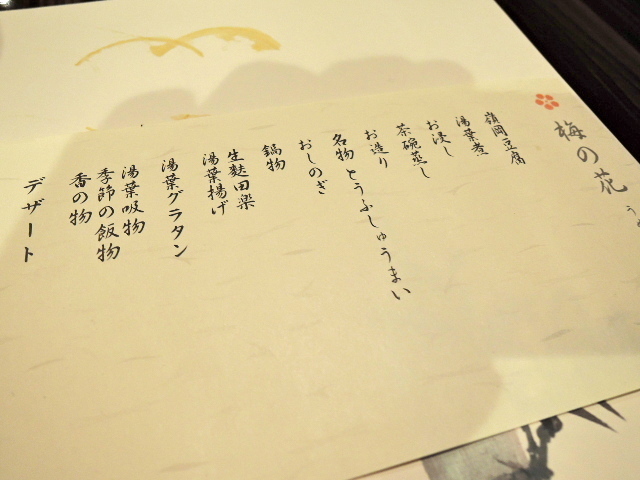 梅の花
嶺岡豆腐
湯葉煮
お浸し
茶碗蒸し
お造り
名物とうふしゅうまい
おしのぎ
鍋物
生麩田楽
湯葉揚げ
湯葉グラタン
湯葉吸物
季節の飯物
香の物
デザート